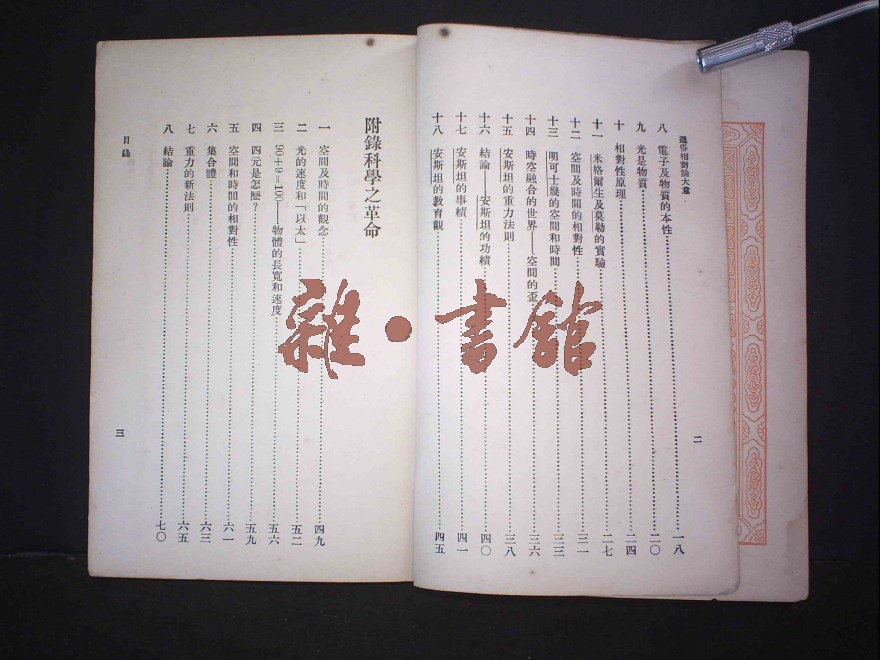 通俗相對論大意
八 電子及物質的本性……一八
九 光是物質……二〇
十 相對性原理……二四
十一 米格爾生及莫勒的實驗……二七
十二 空間及時間的相對性……三一
十三 明可士幾的空間和時間……三三
十四 時空融合的世界——空間的歪……三六
十五 安斯坦的重力法則……三八
十六 結論——安斯坦的功績……四〇
十七 安斯坦的事績……四一
十八 安斯坦的教育觀……四五
二
附錄科學之革命
一 空間及時間的觀念……四九
二 光的速度和「以太」……五二
三 90+9=100——物體的長寬和速度……五六
四 四元是怎麼？……五九
五 空間和時間的相對性……六一
六 集合體……六三
七 重力的新法則……六五
八 結論……七〇
目錄
三
雜·書館